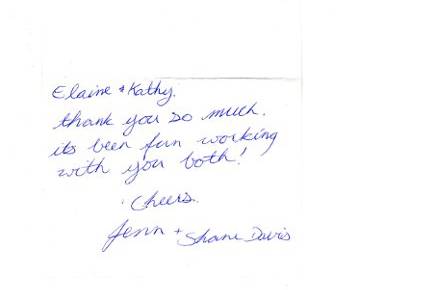 Elaine + Kathy.
thank you so much.
its been fun working
with you both!
Cheers.
Jenn + Shane Davis